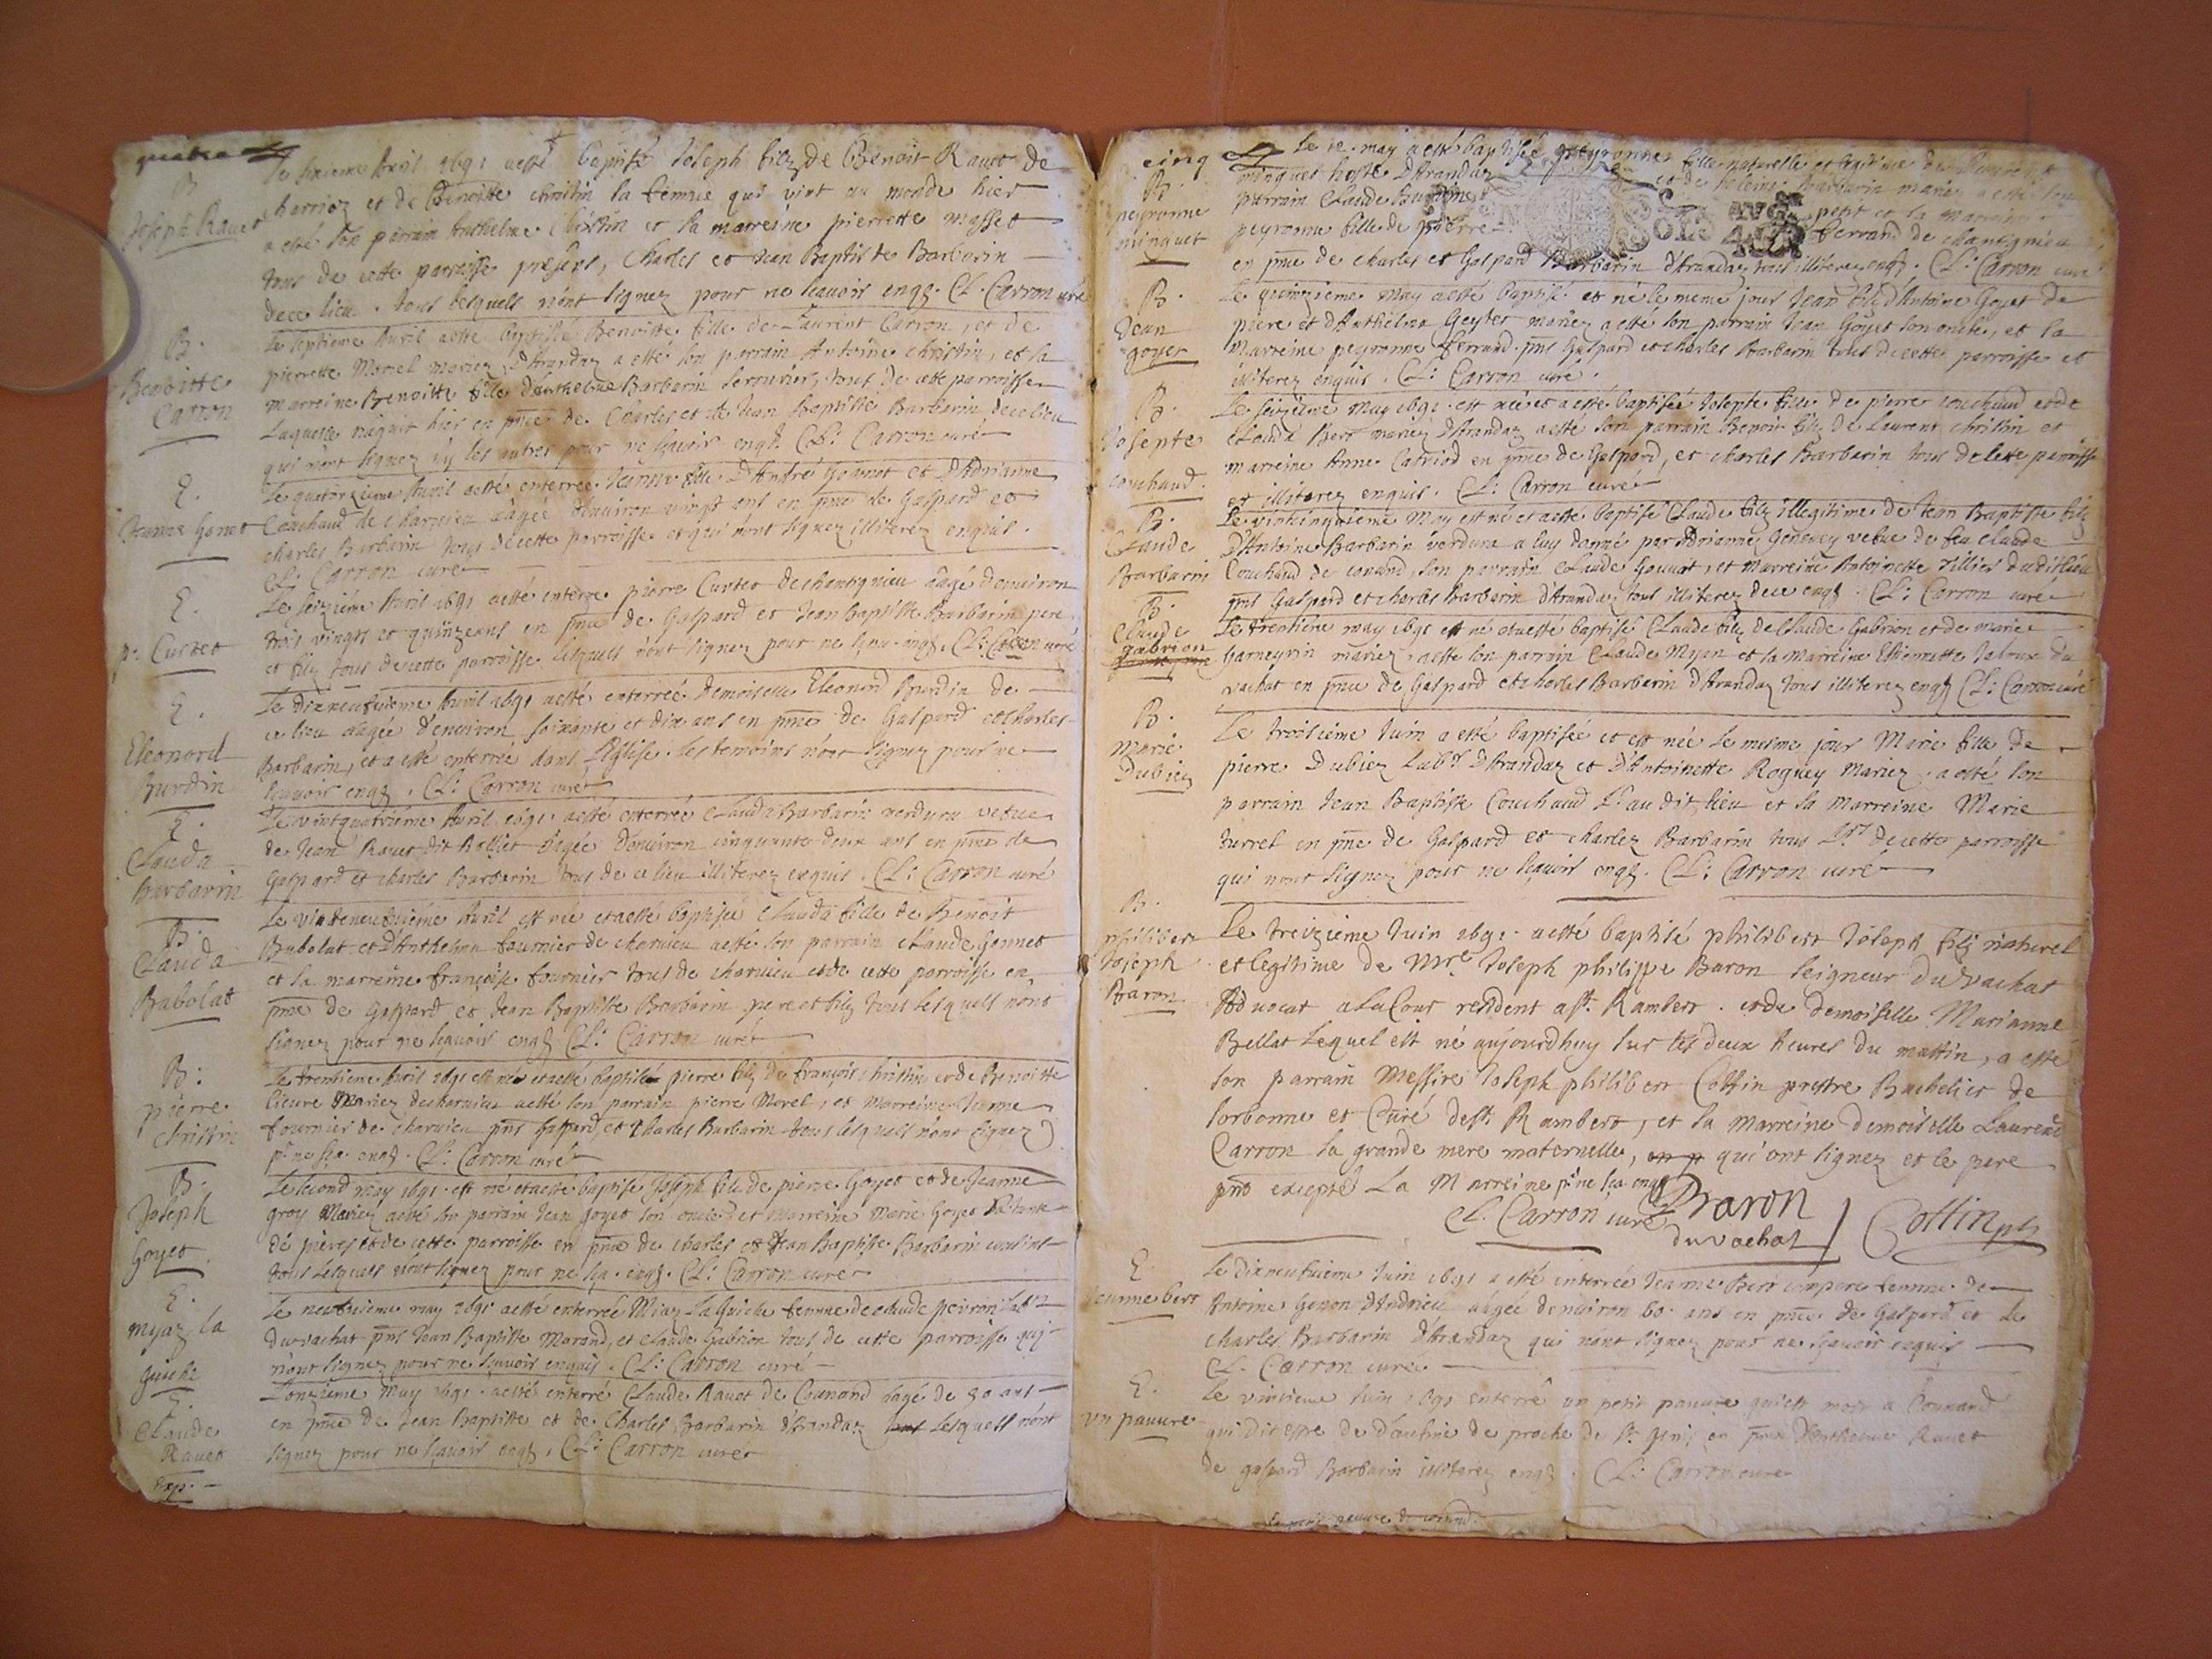 quatre
B.
Joseph Ravet
Le sixieme Avril 1691 a esté baptisé Joseph filz de Benoit Ravet de
et de Benoitte Christin sa femme qui vint au monde hier
a esté son parrain Anthelme Christin et sa marreine pierrette Masset
tous de cette parroisse presens, Charles et Jean Baptiste Barbarin
de ce lieu. tous lesquels n'ont signez pour ne sçavoir enqz. Cl. Carron curé
B.
Benoitte
Carron
Le septieme Avril a esté baptisée Benoitte fille de Laurent Carron, et de
pierrette Morel mariez d'Arandaz a esté son parrain Antoine Christin, et la
marreine Benoitte fille d'Anthelme Barbarin serrurier, tous de cette parroisse
Laquelle naquit hier en pnce de Charles et de Jean Baptiste Barbarin de ce lieu
qui n'ont signez ny les autres pour ne sçavoir enqz. Cl: Carron curé
E.
Jeanne Gonet
Le quatorzieme Avril a esté enterrée Jeanne fille d'André Gonnet et d'Adrianne
Couchaud de Charvieu aagée d'environ vingt ans en pnce de Gaspard et
charles Barbarin tous de cette parroisse et qui n'ont signez illiterez enquis.
Cl: Carron curé
E.
pe. Curtet
Le seizieme Avril 1691 a esté enterré pierre Curtet de chantignieu aagé d'environ
trois vingts et quinze ans en pnce de Gaspard et Jean baptiste Barbarin pere
et filz tous de cette parroisse lesquels n'ont signez pour ne sçav. enqz. Cl: Carron curé
E.
Eleonord
Burdin
Le dixneufvieme Avril 1691 a esté enterrée demoiselle Eleonord Burdin de
ce lieu aagée d'environ soixante et dix ans en pnce de Gaspard et charles
Barbarin, et a esté enterrée dans l'Eglise. les temoins n'ont signez pour ne
sçavoir enqz. Cl: Carron curé
E.
Clauda
Barbarin
Le vintquatrieme Avril 1691 a esté enterrée Clauda Barbarin verdura vefve
de Jean Ravet dit Rollet aagée d'environ cinquante deux ans en pnce de
Gaspard et charles Barbarin tous de ce lieu illiterez enquis. Cl: Carron curé
B.
Clauda
Babolat
Le vinteneufvieme Avril est née et a esté baptisée Clauda fille de Benoit
Babolat et d'Anthelma fournier de charvieu a esté son parrain Claude Gonnet
et la marreine françoise fournier tous de charvieu et de cette parroisse en
pnce de Gaspard et Jean Baptiste Barbarin pere et filz tous lesquels n'ont
signez pour ne sçavoir enqz Cl: Carron curé
B:
pierre
christin
Le trentieme Avril 1691 est né et a esté baptisé pierre filz de françois christin et de Benoitte
lieure Mariez de charvieu a esté son parrain pierre Morel, et marreine Jeanne
fournier de charvieu pns Gaspard, et Charles Barbarin tous lesquels n'ont signez
pr ne sça. enqz. Cl: Carron curé
B.
Joseph
Goyet
Le second may 1691 est né et a esté baptisé Joseph filz de pierre Goyet et de Jeanne
groz Mariez a esté son parrain Jean goyet son oncle et marreine marie Goyet sa tante
de pieres et de cette parroisse en pnce de charles et Jean Baptiste Barbarin cousins
tous lesquels n'ont signez pour ne sça. enqz. Cl: Carron curé
E.
myaz la
guiche
Le neufvieme may 1691 a esté enterrée Miaz La guiche femme de claude peivron labr
du vachat pns Jean Baptiste Morand, et claude Gabrion tous de cette parroisse qui
n'ont signez pour ne sçavoir enquis. Cl: Carron curé
E.
Claude
Ravet
L'onzieme May 1691 a esté enterré Claude Ravet de Counand aagé de 50 ans
en pnce de Jean Baptiste et de Charles Barbarin d'Arandaz lesquels n'ont
signez pour ne sçavoir enqz. Cl: Carron curé
exp.
cinq
B.
peyronne
minguet
Le 12. may a esté baptisée peyronne fille naturelle et legitime de
minguet hoste d'Arandaz et de heleine Barbarin mariez a esté son
parrain Claude petit et la marreine
peyronne fille de pierre ferrand de chantignieu
en pnce de charles et Gaspard Barbarin d'Arandaz tous illiterez enqz. Cl: Carron curé
SOLS
B.
Jean
goyet
Le quinzieme may a esté baptisé et né le meme jour Jean filz d'Antoine Goyet de
piere et d'Anthelma Geytet mariez a esté son parrain Jean Goyet son oncle, et la
marreine peyronne ferrand. pns Gaspard et charles Barbarin tous de cette parroisse et
illiterez enquis. Cl: Carron curé.
B.
Josepte
couchaud.
Le seizieme may 1691. est née et a esté baptisée Josepte fille de pierre couchaud et de
Clauda Bert mariez d'Arandaz a esté son parrain Benoit filz de Laurent christin et
marreine Anne Catriod en pnce de Gaspard, et charles Barbarin tous de cette parroisse
et illiterez enquis. Cl: Carron curé
B.
Claude
Barbarin
Le vintcinqvieme May est né et a esté baptisé Claude filz illegitime de Jean Baptiste filz
d'Antoine Barbarin verdura a luy donné par Adrianne Genevey vefve de feu claude
Couchaud de counand, son parrain Claude Gonnet, et marreine Antoinette Tillier dudit lieu
pns Gaspard et charles Barbarin d'Arandaz tous illiterez de ce enqz. Cl: Carron curé
B.
claude
gabrion
Le trentieme may 1691 est né et a esté baptisé Claude filz de Claude Gabrion et de marie
Garneyrin mariez, a esté son parrain Claude Myan et sa Marreine Estiennette Jaloux du
vachat en pnce de Gaspard et charles Barbarin d'Arandaz tous illiterez enqz Cl: Carron curé
B.
Marie
Dubiez
Le troisieme Juin a esté baptisée et est née le mesme jour Marie fille de
pierre Dubiez Labr. d'Arandaz et d'Antoinette Roguey Mariez, a esté son
parrain Jean Baptiste Couchaud Lr. audit lieu et sa Marreine Marie
turrel en pnce de Gaspard et charlez Barbarin tous Lrs de cette parroisse
qui n'ont signez pour ne sçavoir enqz. Cl: Carron curé
B.
philibert
Joseph
Baron
Le treizieme Juin 1691. a esté baptisé philibert Joseph filz naturel
et legitime de Mre. Joseph philippe Baron seigneur du vachat
Advocat a La Cour resident a St. Rambert. et de demoiselle Marianne
Bellat Lequel est né aujourdhuy sur les deux heures du mattin, a esté
son parrain Messire Joseph philibert Cottin prestre Bachelier de
sorbonne et Curé de St. Rambert, et sa Marreine demoiselle Laurence
Carron sa grande mere maternelle, en p qui ont signez et le pere
pnt excepté La Marreine pr. ne sça enqz
Cl. Carron curé Baron
du vachat Cottin
E.
Jeanne bert
Le dixneufvieme Juin 1691 a esté enterrée Jeanne Bert compere femme de
Antoine Genon d'Andrieu aagée d'environ 60. ans en pnce de Gaspard et de
charles Barbarin d'Arandaz qui n'ont signez pour ne sçavoir enquis
Cl. Carron curé.
E.
un pauvre
Le vintieme Juin 1691 enterré un petit pauvre qui est mort a Counand
qui dit estre de d'auphiné de proche de St. Genis en pnce d'Anthelme Ravet
de gaspard Barbarin illiterez enqz. Cl: Carron curé
le petit pauvre de counand.